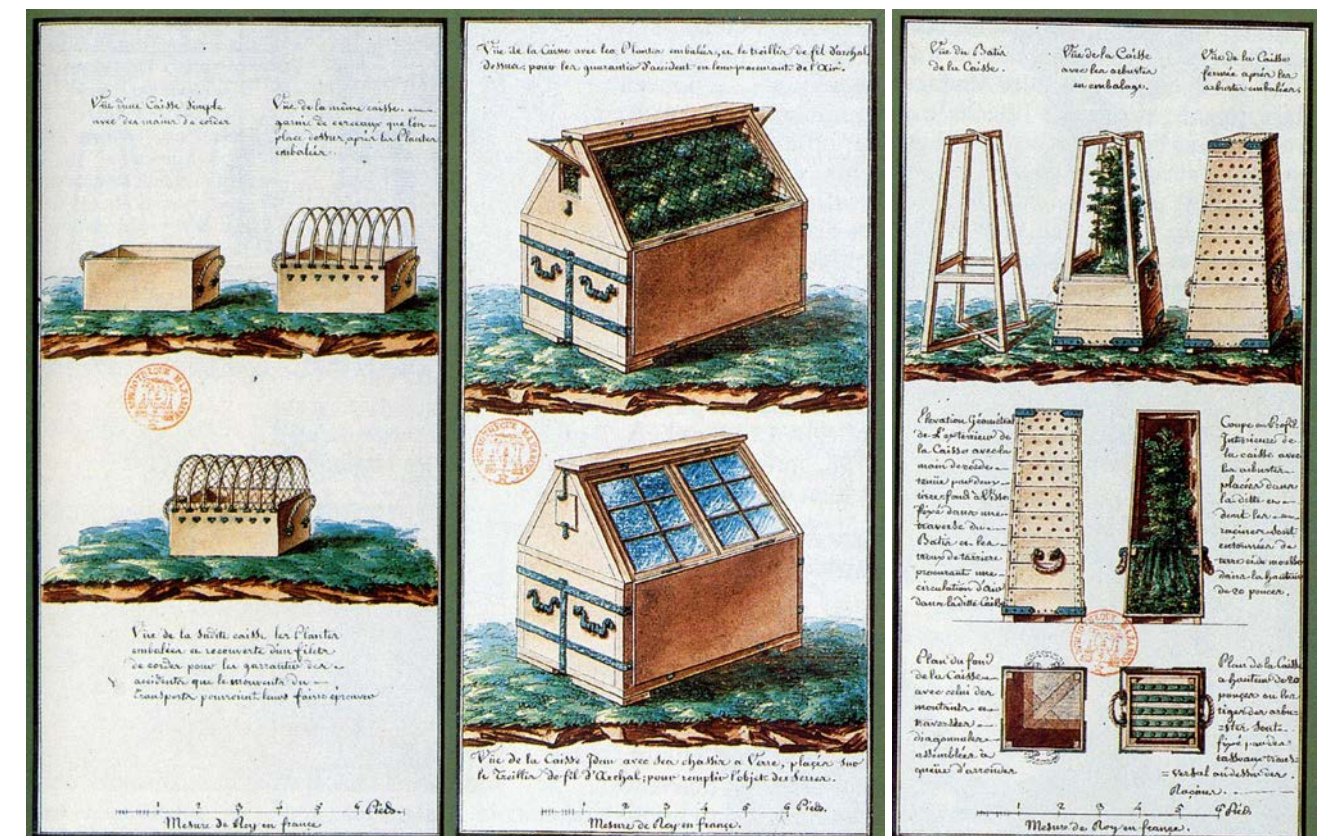 Vüe d'une Caisse Simple
avec des mains de corder
Vüe de la même caisse
garnie de cerceaux que l'on
place dessus, après les Planter
embalées
Vüe de la Sudite caisse les Planter
embalées et recouverte d'un filets
de corder pour les garrantir des
accidents que le mouvents du
transports pourroient leurs faire éprouver
1 2 3 4 5 6 Pieds.
Mesure de Roy en france
Vüe de la Caisse avec les Plantes embalées, et le treillis de fil d'archal
dessus, pour les quarantir d'accident en leur procurant de l'Air.
Vüe de la Caisse Idem avec Ses chassis a Verre, placés sur
le Treillis de fil d'Archal; pour remplir l'objet des Serres.
1 2 3 4 5 6 Pieds.
Mesure de Roy en france.
Vüe du Batis
de la Caisse.
Vüe de la Caisse
avec les arbustes
en embalage.
Vüe de la Caisse
fermée après les
arbustes embalées.
Elevation Géometral
de L'exterieur de
la Caisse avec la
main de corde
tenüe par deux
tire-fond à Visse
fixée dans une
traverse du
Batis et les
treux de tarriere
procurant une
circulation d'air
dans la ditte Caisse
Coupe en Profil
Intérieure de
la caisse avec
les arbustes
placées dans
la ditte en
dont les
racines sont
entourées de
terre et de mousse
dans la hauteur
de 20 pouces.
Plan du fond
de la Caisse
avec celui des
montants et
traverses
diagonales
assemblées à
queue d'arronder
Plan de la Caisse
a hauteur de 20
pouces ou les
tiges des arbu-
stes sont
fixé par des
tasseaux trans-
= versal au dessus des
Racines.
1 2 3 4 5 6 Pieds.
Mesure de Roy en france.